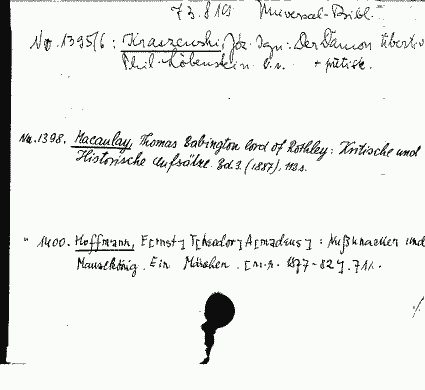 73.819 Universal-Bibl.
No. 1395/6: Kraszewski, Joz. Ign: Der Dämon übertr. v
Phil. Löbenstein. o.n.
No. 1398. Macaulay, Thomas Babington lord of Rothley: Kritische und
Historische Aufsätze. Bd. 3. (1887), 112 s.
" 1400. Hoffmann, E[rnst] T[heodor] A[madeus]: Nußknacker und
Mausekönig. Ein Märchen. [n.n. 1877-82]. 71 s.